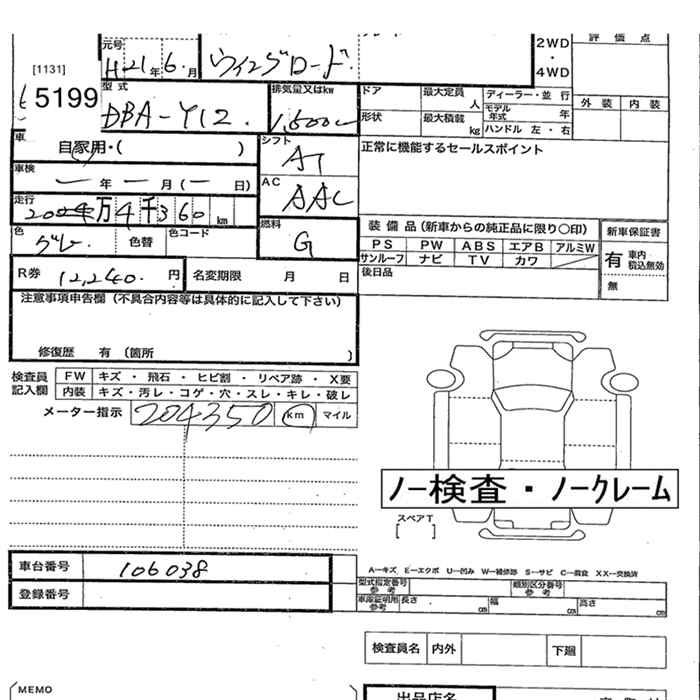 元号
H21年 6.月
ウイングロード.
2WD
・
4WD
評 価 点
外 装 内 装
[1131]
5199
型 式
DBA-Y12.
排気量又はkw
1,500cc
ドア
最大定員
人
ディーラー・並 行
形状
最大積載
kg
モデル
年式
年
ハンドル 左・右
車
自家用・( )
シフト
AT
正常に機能するセールスポイント
車検
一 年 一 月 (一 日)
AC
AAC
走行
万4千360 km
色
グレ.
色替
色コード
燃料
G
装 備 品 (新車からの純正品に限り〇印)
新車保証書
PS PW ABS エアB アルミW
サンルーフ ナビ TV カワ
有 車内
積込無効
無
後日品
R券
12,240.円
名変期限 月 日
注意事項申告欄 (不具合内容等は具体的に記入して下さい)
修復歴 有 〔箇所 〕
検査員
記入欄
FW キズ ・ 飛石 ・ ヒビ割 ・ リペア跡 ・ X要
内装 キズ・汚レ・コゲ・穴・スレ・キレ・破レ
メーター指示
204350 km マイル
ノー検査・ノークレーム
スペアT
[ ]
車台番号
106038
登録番号
A…キズ E…エクボ U…凹み W…補修跡 S…サビ C…腐食 XX…交換済
型式指定番号
参 考
類別区分番号
参 考
車庫証明用
参考
長さ cm 幅 cm 高さ cm
検査員名 内外 下廻
MEMO
出品店名